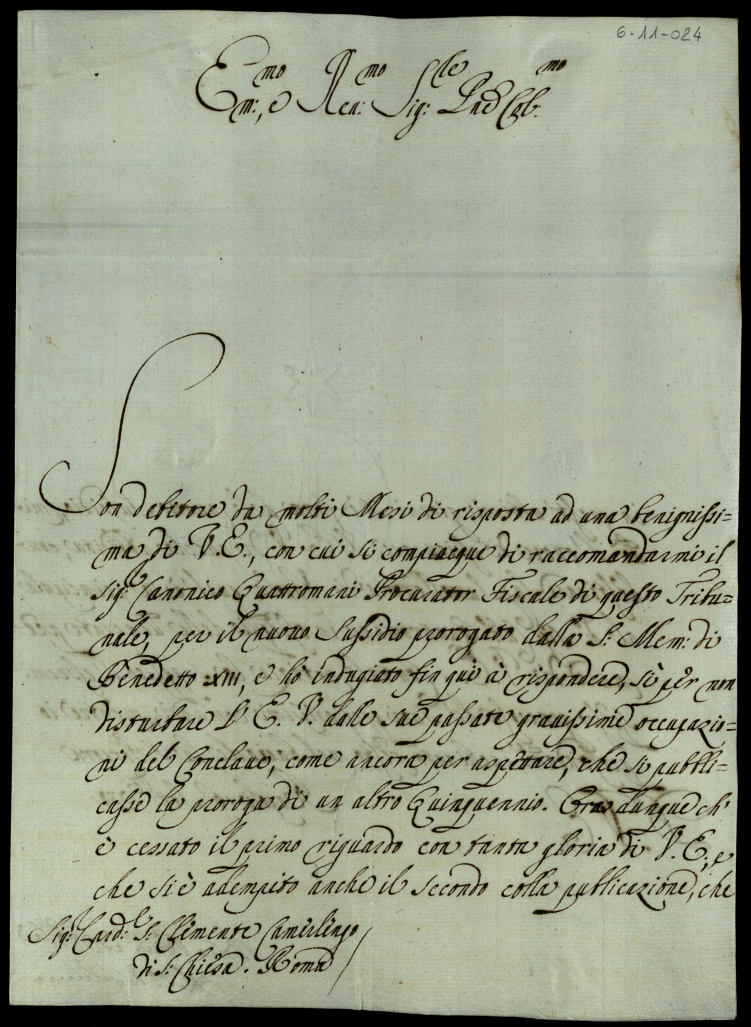 6-11-024
Em:mo, e Reu:mo Sig:le Pad Col:mo
Son debitore da molti Mesi di risposta ad una benignissi=
ma di V. E., con cui si compiacque di raccomandarmi il
Sig:e Canonico Quattromani Procurator Fiscale di questo Tribu=
nale, per il nuovo Sussidio prorogato dalla S: Mem: di
Benedetto XIII, e hò indugiato fin qui à rispondere, sì per non
disturbare l'E. V. dalle sue passate grauissime occupazio=
ni del Conclaue, come ancora per aspettare, che si pubbli=
casse la proroga di un altro Quinquennio. Ora dunque ch'
è cessato il primo riguardo con tanta gloria di V. E., e
che si è adempito anche il secondo colla publicazione, che
Sig:e Card:e S: Clemente Camerlingo
di S: Chiesa. Roma /